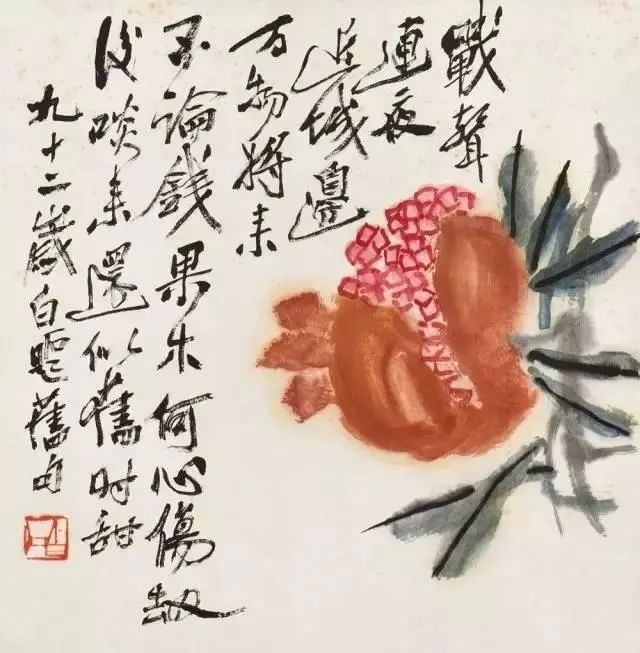 戰聲
連夜
近城邊
万物將來
不論錢果木何心傷劫
後啖來還似舊时甜
九十二歲白題舊句